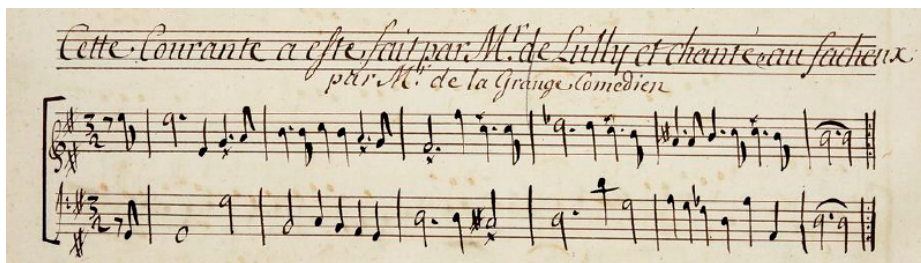 Cette Courante a este fait par Mr. de Lully et chantée au facheux
par Mr. de la Grange Comedien